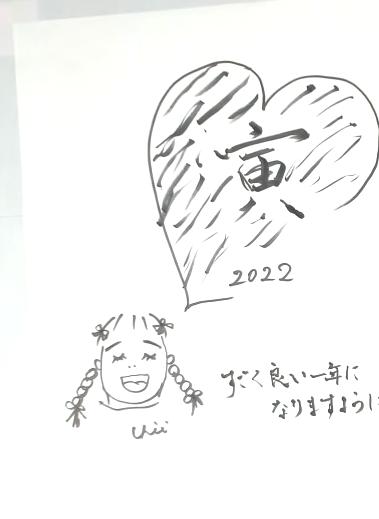 寅
2022
すごく良い一年に
なりますように
chii